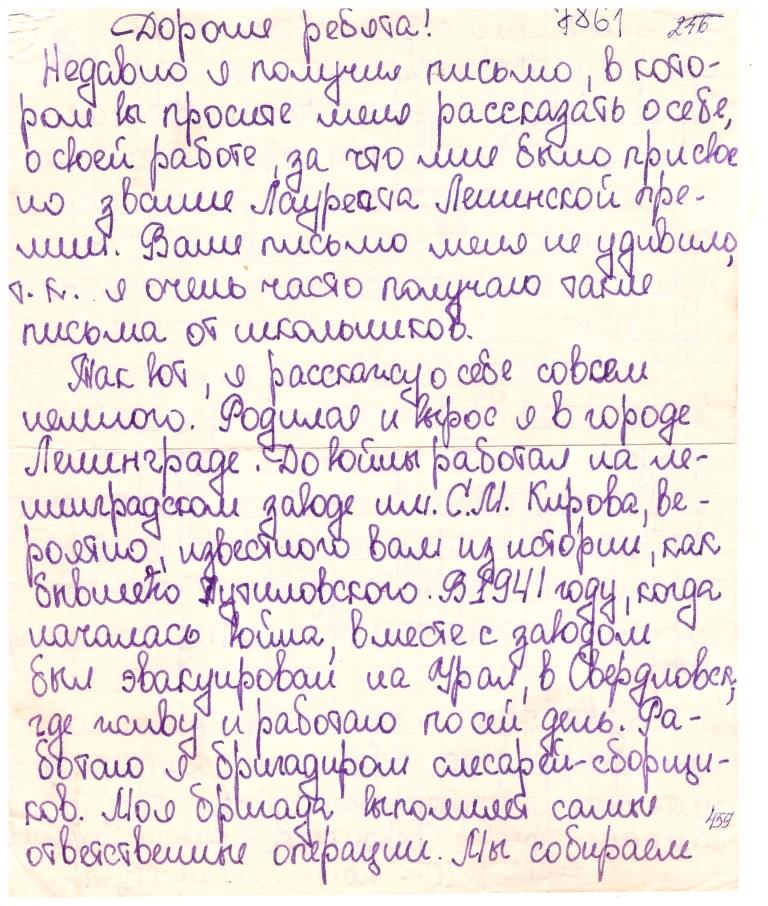 Дорогие ребята! 7861 276
Недавно я получил письмо, в кото-
ром вы просите меня рассказать о себе,
о своей работе, за что мне было присвое
но звание Лауреата Ленинской пре-
мии. Ваше письмо меня не удивило,
т.к. я очень часто получаю такие
письма от школьников.
Так вот, я расскажу о себе совсем
немного. Родился и вырос я в городе
Ленинграде. До войны работал на ле-
нинградском заводе им. С.М. Кирова, ве-
роятно, известного вам из истории, как
бывшего Путиловского. В 1941 году, когда
началась война, вместе с заводом
был эвакуирован на Урал, в Свердловск,
где живу и работаю по сей день. Ра-
ботаю я бригадиром слесарей-сборщи-
ков. Моя бригада выполняет самые
ответственные операции. Мы собираем